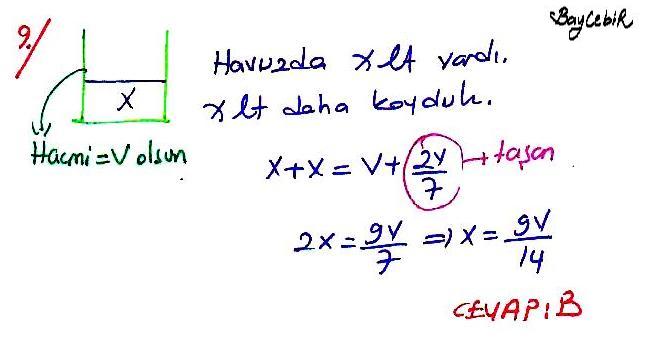 BayCebiR
9./
Havuzda x lt vardı.
x
x lt daha koyduk.
Hacmi = V olsun
x + x = V + 2V/7 → taşan
2x = 9V/7 ⇒ x = 9V/14
CEVAP: B